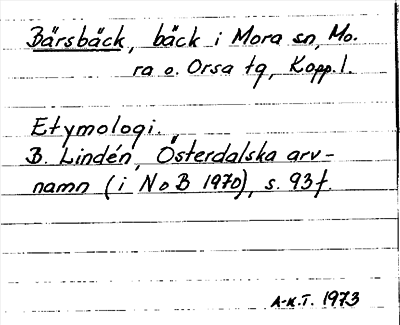 Bärsbäck, bäck i Mora sn, Mo-
ra o. Orsa tg, Kopp. l.
Etymologi.
B. Lindén, Österdalska arv-
namn (i NoB 1970), s. 93f.
A-K.T. 1973